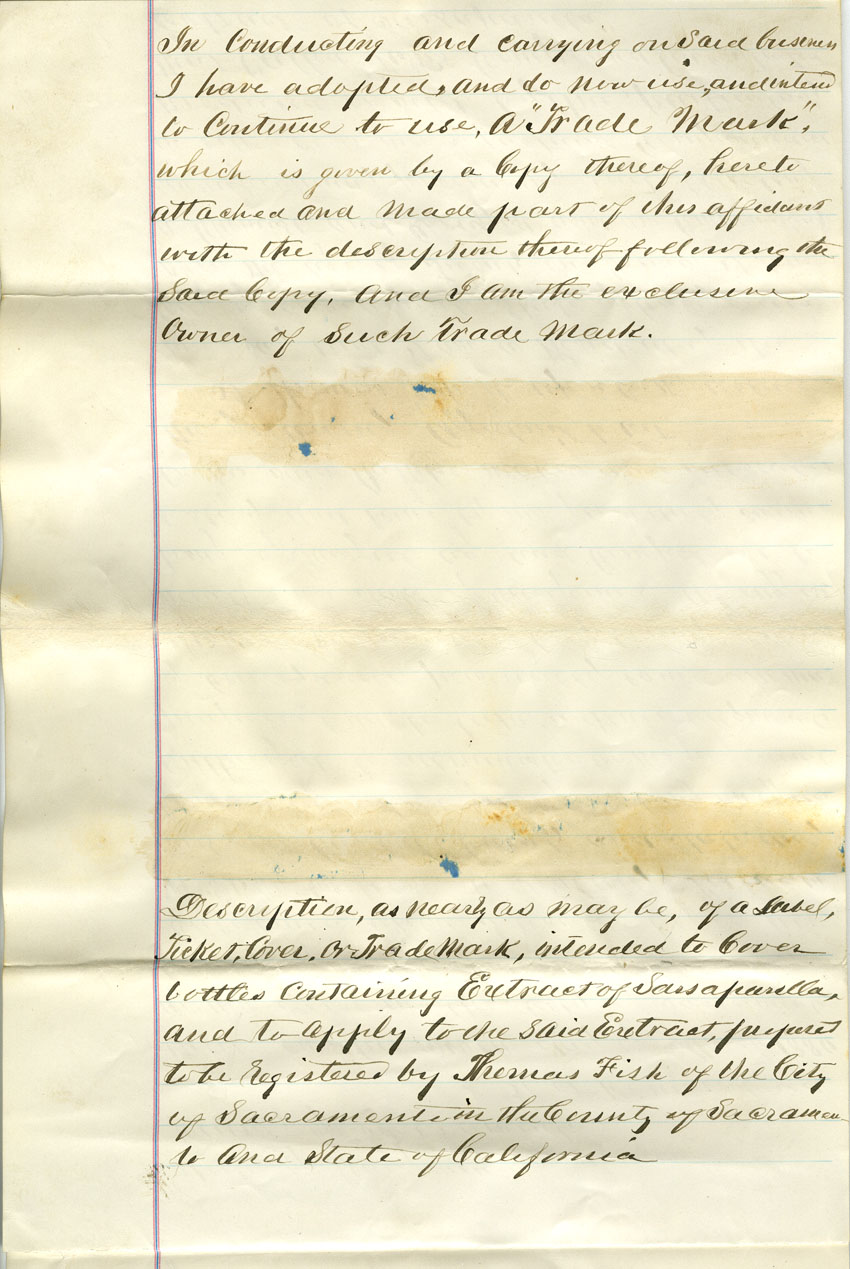 In Conducting and carrying on Said business
I have adopted, and do now use, and intend
to Continue to use, A "Trade Mark",
which is given by a Copy thereof, hereto
attached and made part of this affidavit
with the description thereof following the
Said Copy, And I am the exclusive
Owner of Such Trade Mark.
Description, as nearly as may be, of a Label,
Ticket, Cover, Or Trade Mark, intended to Cover
bottles Containing Extract of Sarsaparilla,
and to apply to the Said Extract,
to be registered by Thomas Fish of the City
of Sacramento in the County of Sacramen
to And State of California